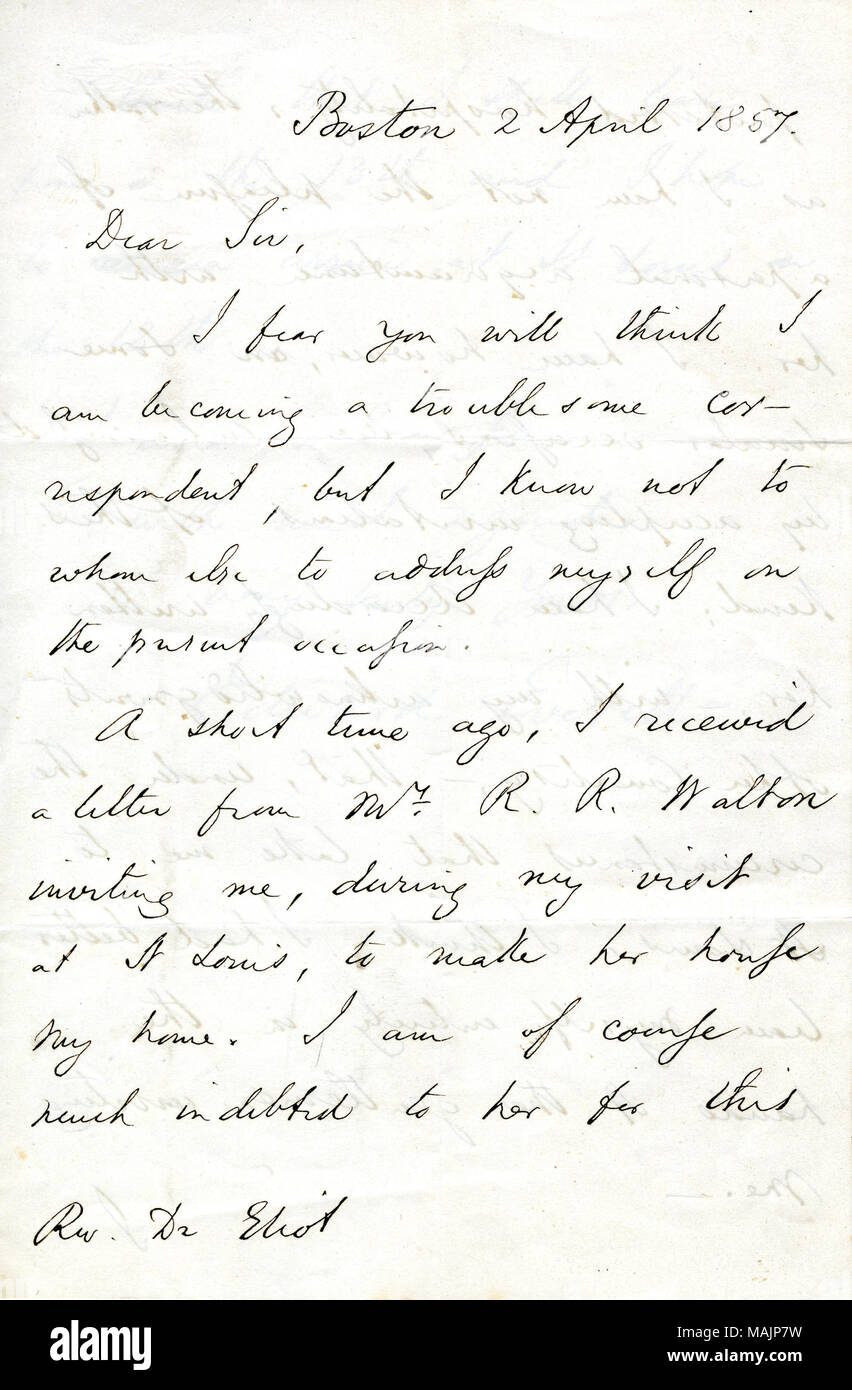 Boston 2 April 1857.
Dear Sir,
I fear you will think I
am becoming a troublesome cor-
respondent, but I know not to
whom else to address myself on
the present occasion.
A short time ago, I received
a letter from Mrs. R. R. Walton
inviting me, during my visit
at St Louis, to make her house
my home. I am of course
much indebted to her for this
Rev. Dr Eliot
alamy
Image ID: MAJP7W
www.alamy.com